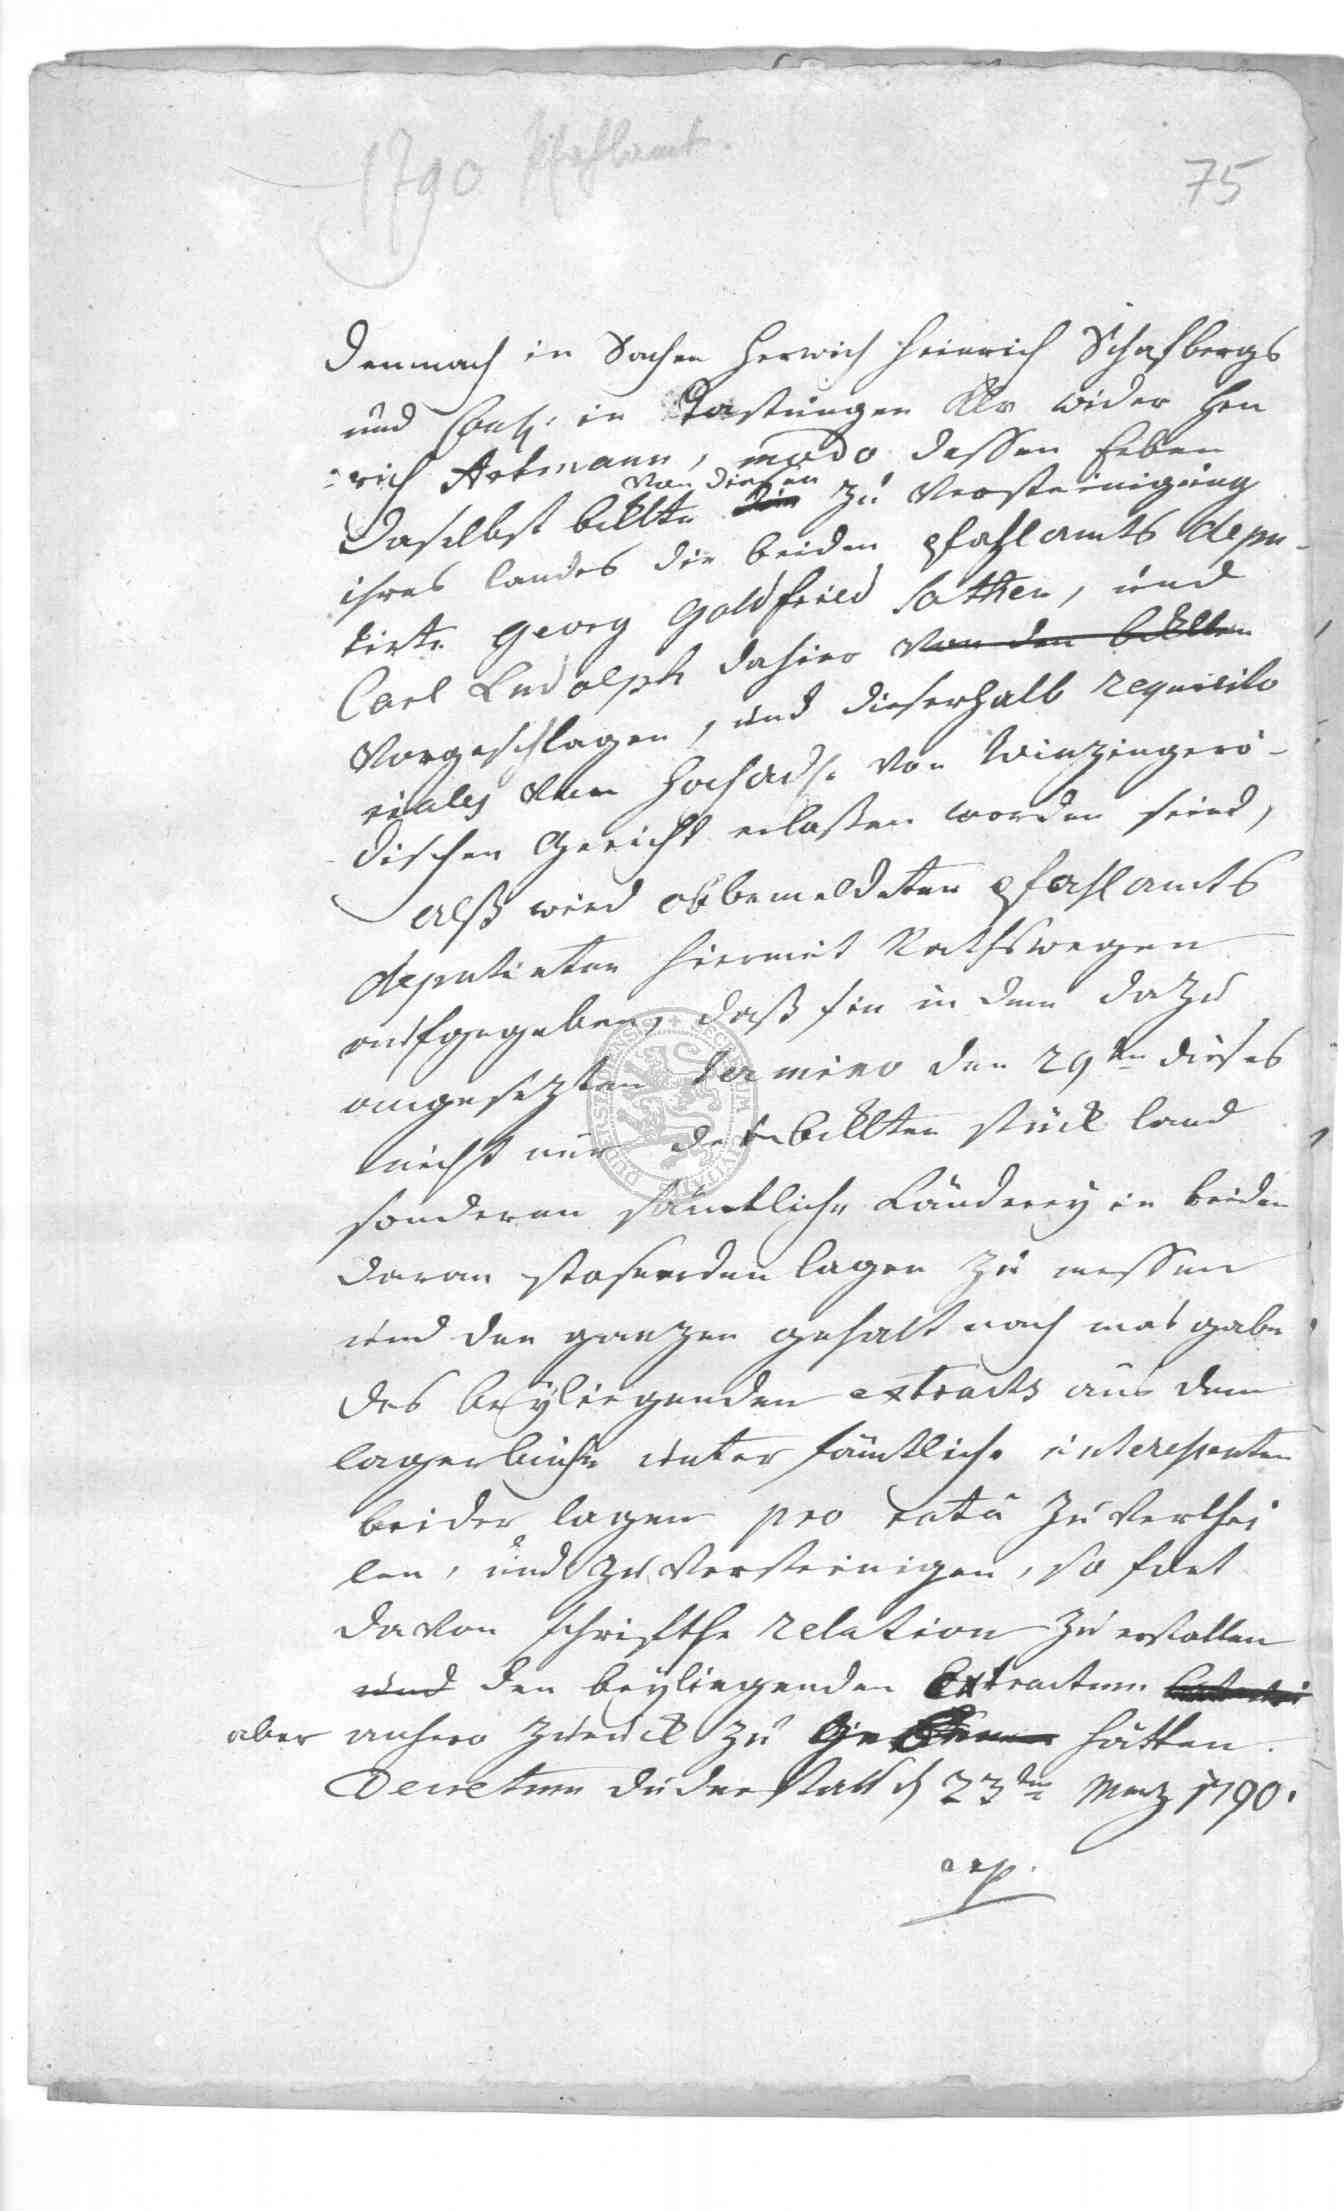 1790 Pfahlamt.
75
Demnach in Sachen Herwich Heinrich Schafbergs
und Cons: in Tastungen Klr wider Hen
=rich Artmann, modo dessen Erben
von diesen
daselbst beklte zu Versteinigung
ihres landes die beiden pfahlamts depu-
tirte Georg Goldfried Sothen, und
Carl Ludolph dahier von den beklten
vorgeschlagen, und dieserhalb requisito
riales vom Hochadl. von Winzingero-
dischen Gericht erlaßen worden sind,
Alß wird obbemeldeten pfahlamts
deputirten hiermit Rathswegen
aufgegeben, daß sie in dem dazu
angesezten termino den 29ten dieses
nicht nur der beklten stück land
sonderen sämtliche Länderey in beiden
daran stosenden lagen zu messen
und den ganzen gehalt nach mas gabe
des beyliegenden extracts aus dem
lagerbuche unter sämtliche interessenten
beider lagen pro rata zu verthei
len, und zu versteinigen, so fort
davon schriftche relation zu erstatten
und den beyliegenden Extractum
aber anhero zurück zu geben hätten.
Decretum Duderstadt d 23ten Merz 1790.
exp.